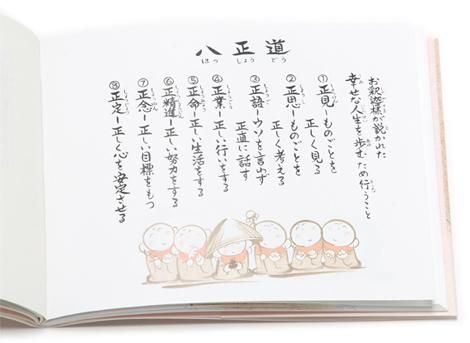 八正道
はっ しょう どう
お釈迦様が説かれた
幸せな人生を歩むため行うこと
①正見ーものごとを
正しく見る
②正思ーものごとを
正しく考える
③正語ーウソを言わず
正直に話す
④正業ー正しい行いをする
⑤正命ー正しい生活をする
⑥正精進ー正しい努力をする
⑦正念ー正しい目標をもつ
⑧正定ー正しく心を安定させる